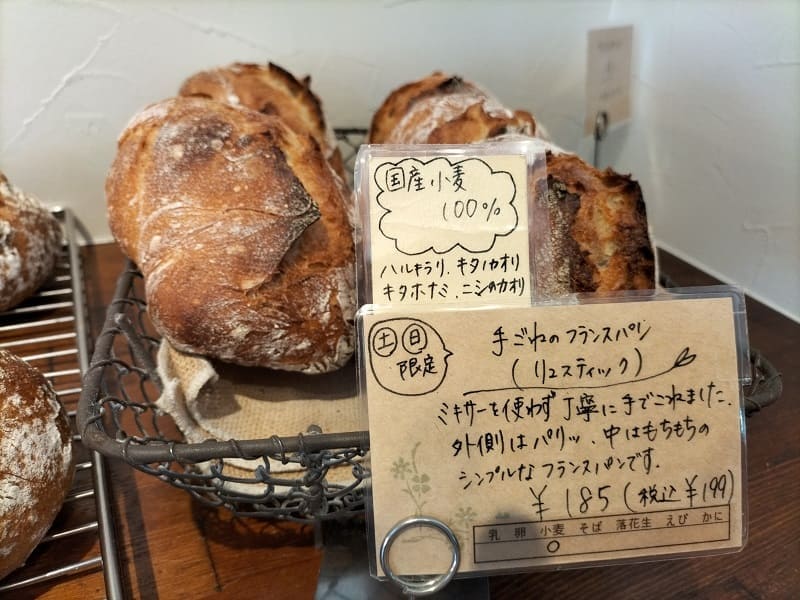 国産小麦
100%
ハルキラリ、キタノカオリ
キタホナミ、ニシのカオリ
土日
限定
手ごねのフランスパン
(リュスティック)
ミキサーを使わず丁寧に手でこねました。
外側はパリッ、中はもちもちの
シンプルなフランスパンです。
¥185(税込¥199)
乳 卵 小麦 そば 落花生 えび かに
○